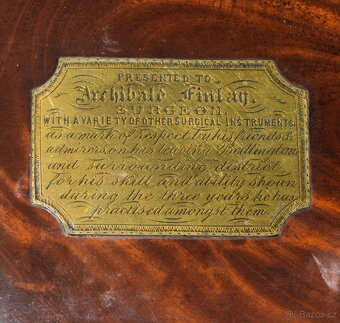 PRESENTED TO
Archibald Finlay,
SURGEON,
WITH A VARIETY OF OTHER SURGICAL INSTRUMENTS,
as a mark of respect by his friends &
admirers on his leaving Bedlington
and surrounding district
for his skill and ability shown
during the three years he has
practised amongst them.
Bazos.cz